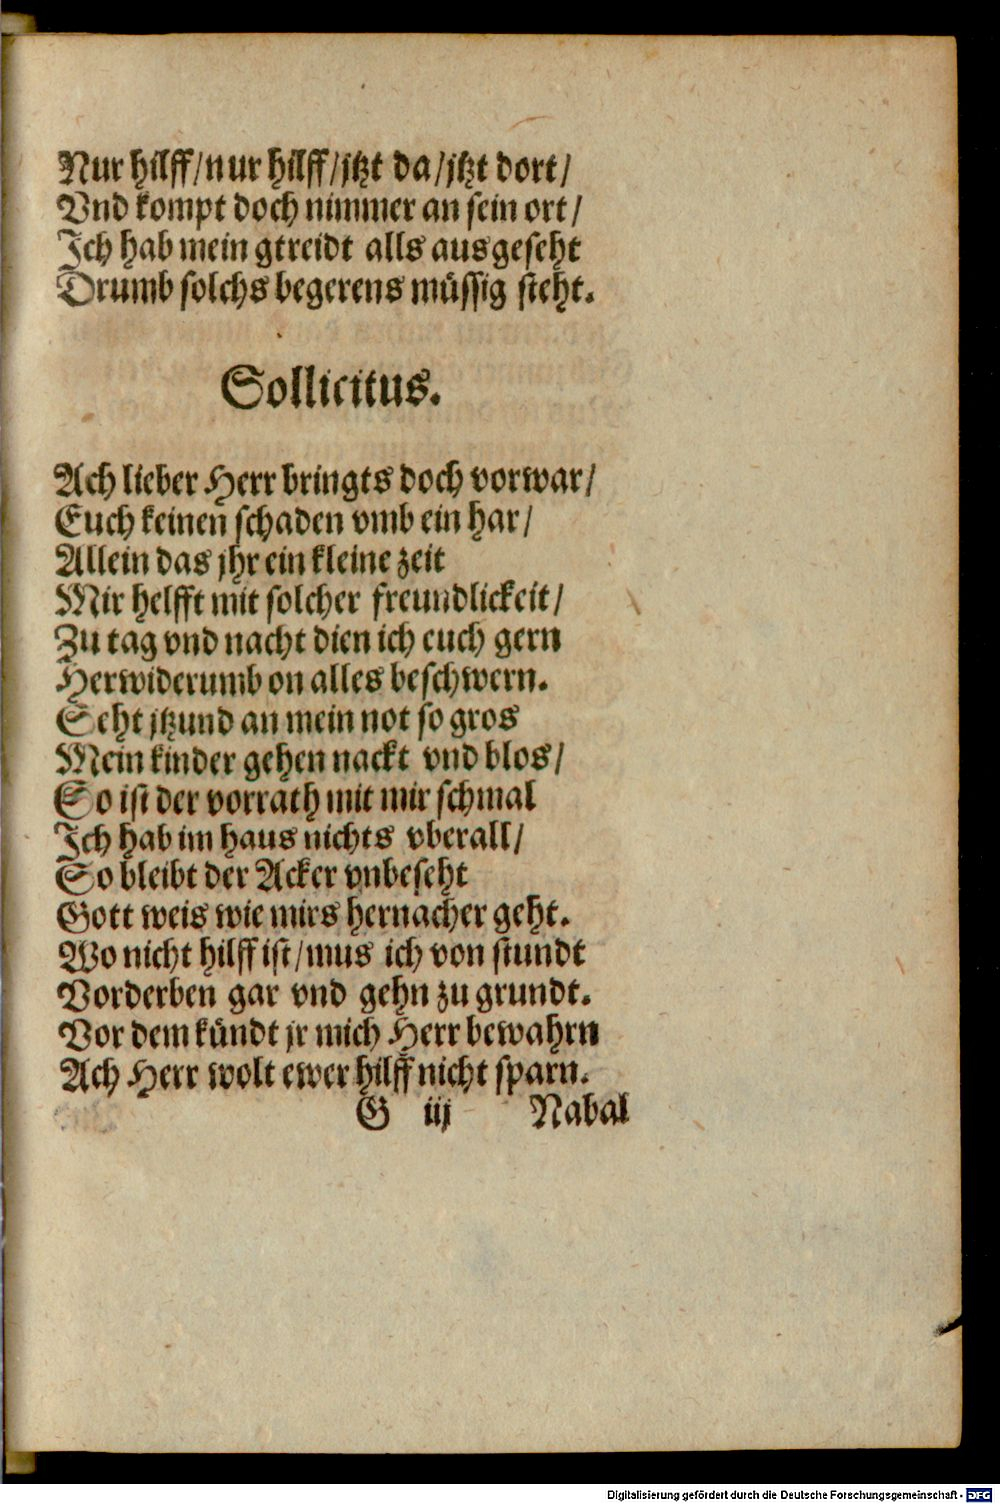 Nur hilff/nur hilff/jtzt da/jtzt dort/
Vnd kompt doch nimmer an sein ort/
Ich hab mein gtreidt alls ausgeseht
Drumb solchs begerens müssig steht.
Sollicitus.
Ach lieber Herr bringts doch vorwar/
Euch keinen schaden vmb ein har/
Allein das jhr ein kleine zeit
Mir helfft mit solcher freundlickeit/
Zu tag vnd nacht dien ich euch gern
Herwiderumb on alles beschwern.
Seht jtzund an mein not so gros
Mein kinder gehen nackt vnd blos/
So ist der vorrath mit mir schmal
Ich hab im haus nichts vberall/
So bleibt der Acker vnbeseht
Gott weis wie mirs hernacher geht.
Wo nicht hilff ist/mus ich von stundt
Vorderben gar vnd gehn zu grundt.
Vor dem kündt jr mich Herr bewahrn
Ach Herr wolt ewer hilff nicht sparn.
G iij Nabal
Digitalisierung gefördert durch die Deutsche Forschungsgemeinschaft - DFG